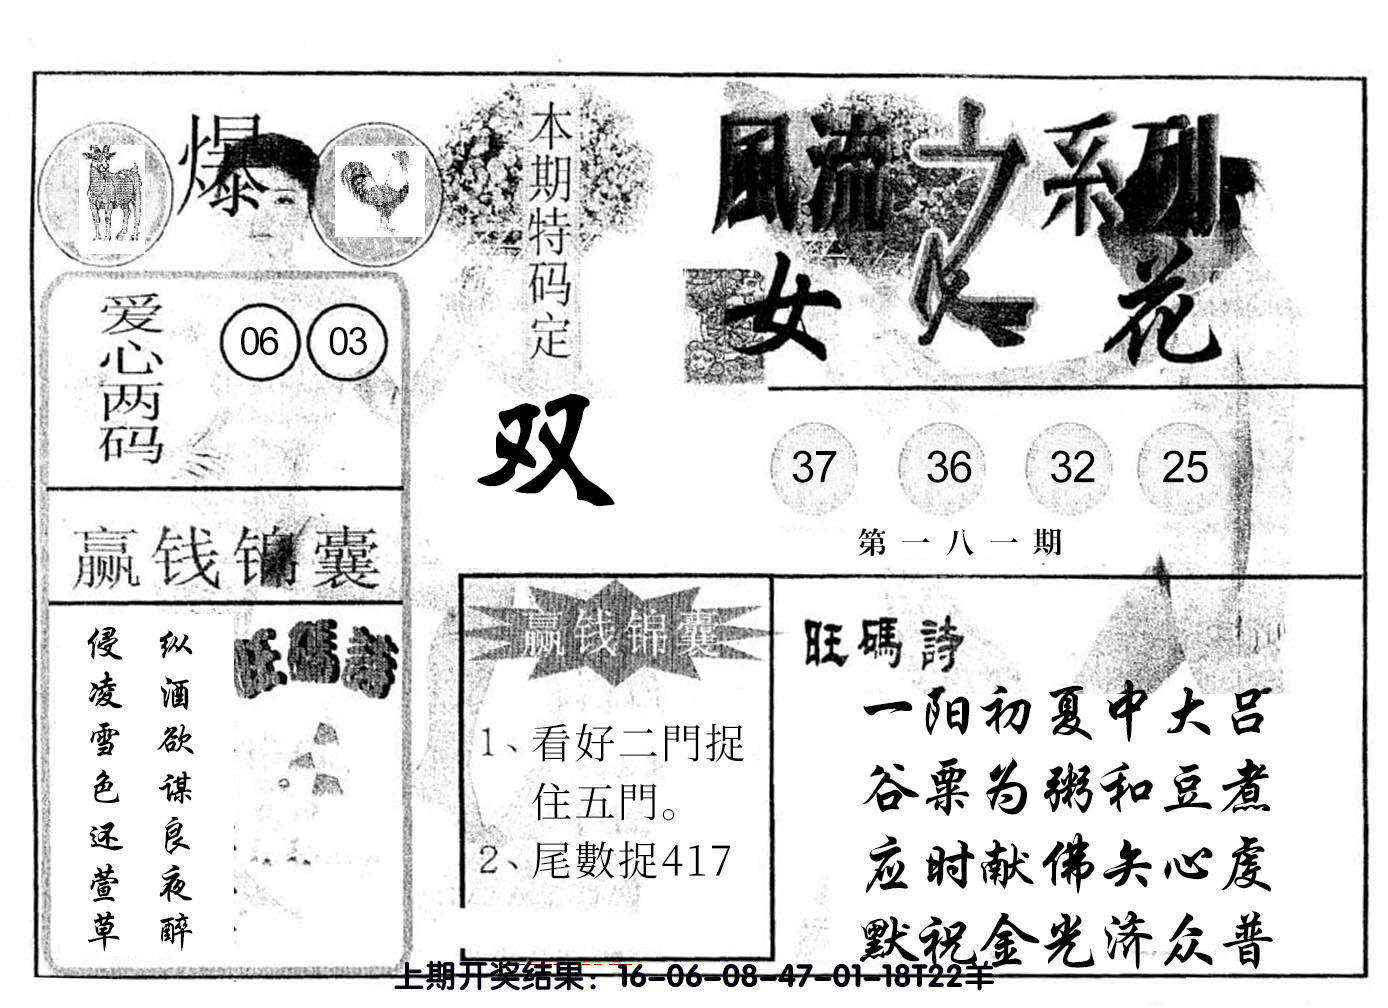 爆
本期特码定
双
風流之系列
女人花
爱心两码
06 03
37 36 32 25
第一八一期
赢钱锦囊
旺碼詩
纵酒欲谋良夜醉
侵凌雪色还萱草
赢钱锦囊
1、看好二門捉
住五門。
2、尾數捉417
旺碼詩
一阳初夏中大吕
谷粟为粥和豆煮
应时献佛矢心虔
默祝金光济众普
上期开奖结果：16-06-08-47-01-18T22羊